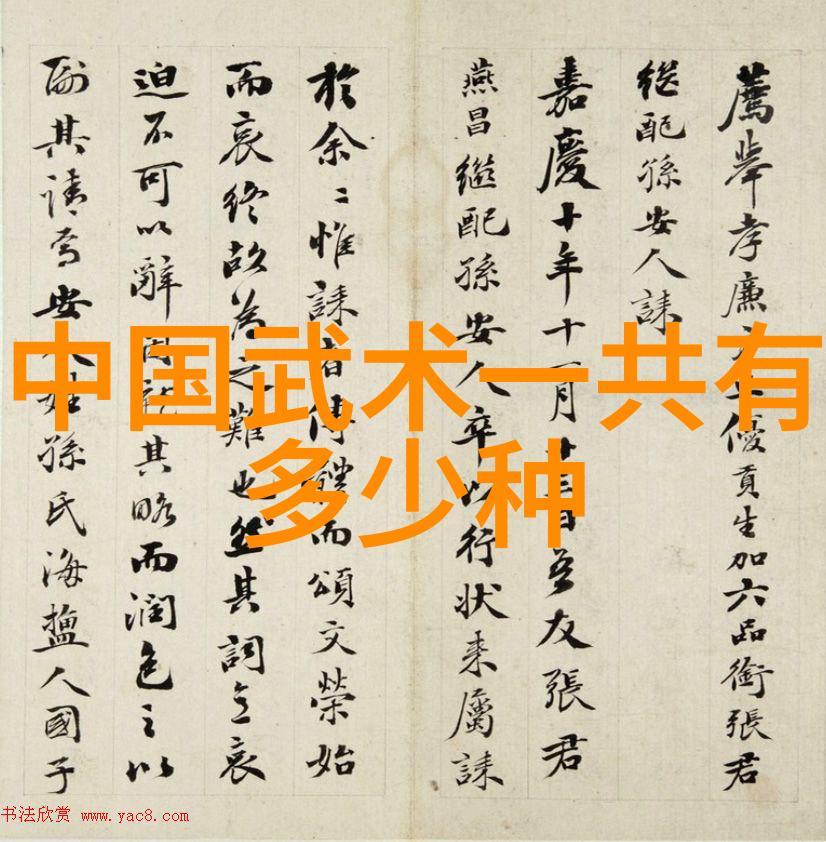 薦舉孝廉優貢生加六品銜張君
继配孫安人誄
嘉慶十年十一月廿三日吾友張君
燕昌继配孫安人卒以行状来屬誄
於余〻惟誄者传體而頌文榮始
而哀终故為之難也然其詞哀
迫不可以辭因其略而潤色之以
副其請焉安人姓孫氏海鹽人國子
中国武术一共有
多少种
书法欣赏 www.yac8.com